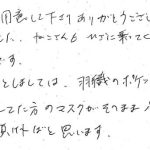 用意して下さりありがとうござい
した。ねこさんも ひざに乗ってく
です。
としましては、羽織のポケッ
してた方のマスクがそのまま
頂ければと思います。